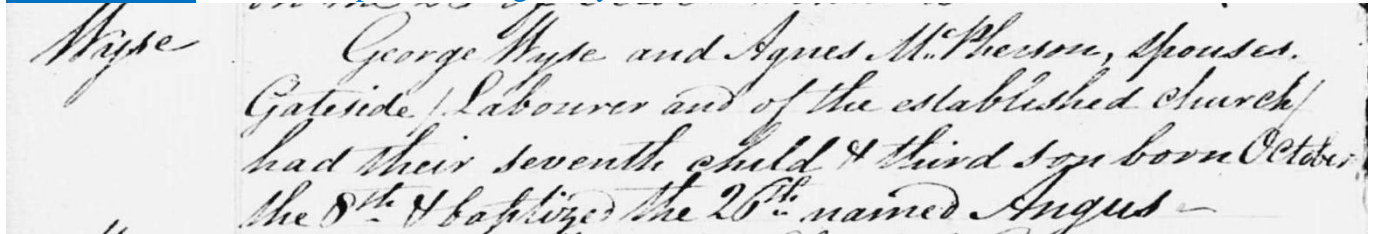 Wyse
George Wyse and Agnes McPherson, spouses.
Gateside / Labourer and of the established church /
had their seventh child & third son born October
the 8th & baptized the 26th named Angus –